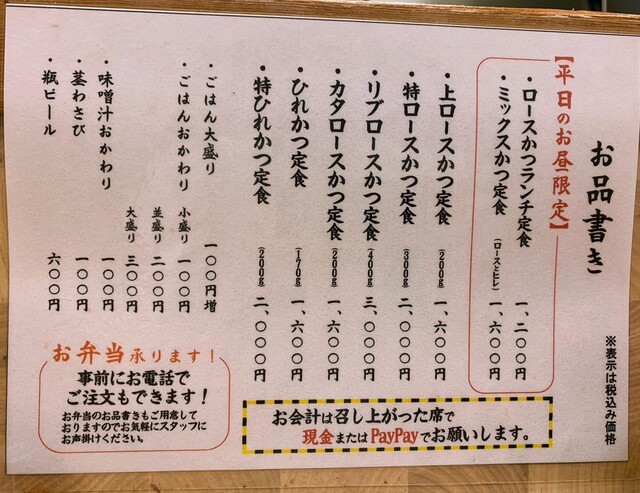 お品書き
※表示は税込み価格
【平日のお昼限定】
・ロースかつランチ定食 一、二〇〇円
・ミックスかつ定食(ロースとヒレ) 一、六〇〇円
・上ロースかつ定食(200g) 一、六〇〇円
・特ロースかつ定食(300g) 二、〇〇〇円
・リブロースかつ定食(400g) 三、〇〇〇円
・カタロースかつ定食(200g) 一、六〇〇円
・ひれかつ定食(170g) 一、六〇〇円
・特ひれかつ定食(200g) 二、〇〇〇円
・ごはん大盛り 一〇〇円増
・ごはんおかわり 小盛り 一〇〇円
並盛り 二〇〇円
大盛り 三〇〇円
・味噌汁おかわり 一〇〇円
・茎わさび 一〇〇円
・瓶ビール 六〇〇円
お会計は召し上がった席で
現金またはPayPayでお願いします。
お弁当承ります!
事前にお電話で
ご注文もできます!
お弁当のお品書きもご用意して
おりますのでお気軽にスタッフに
お声掛けください。